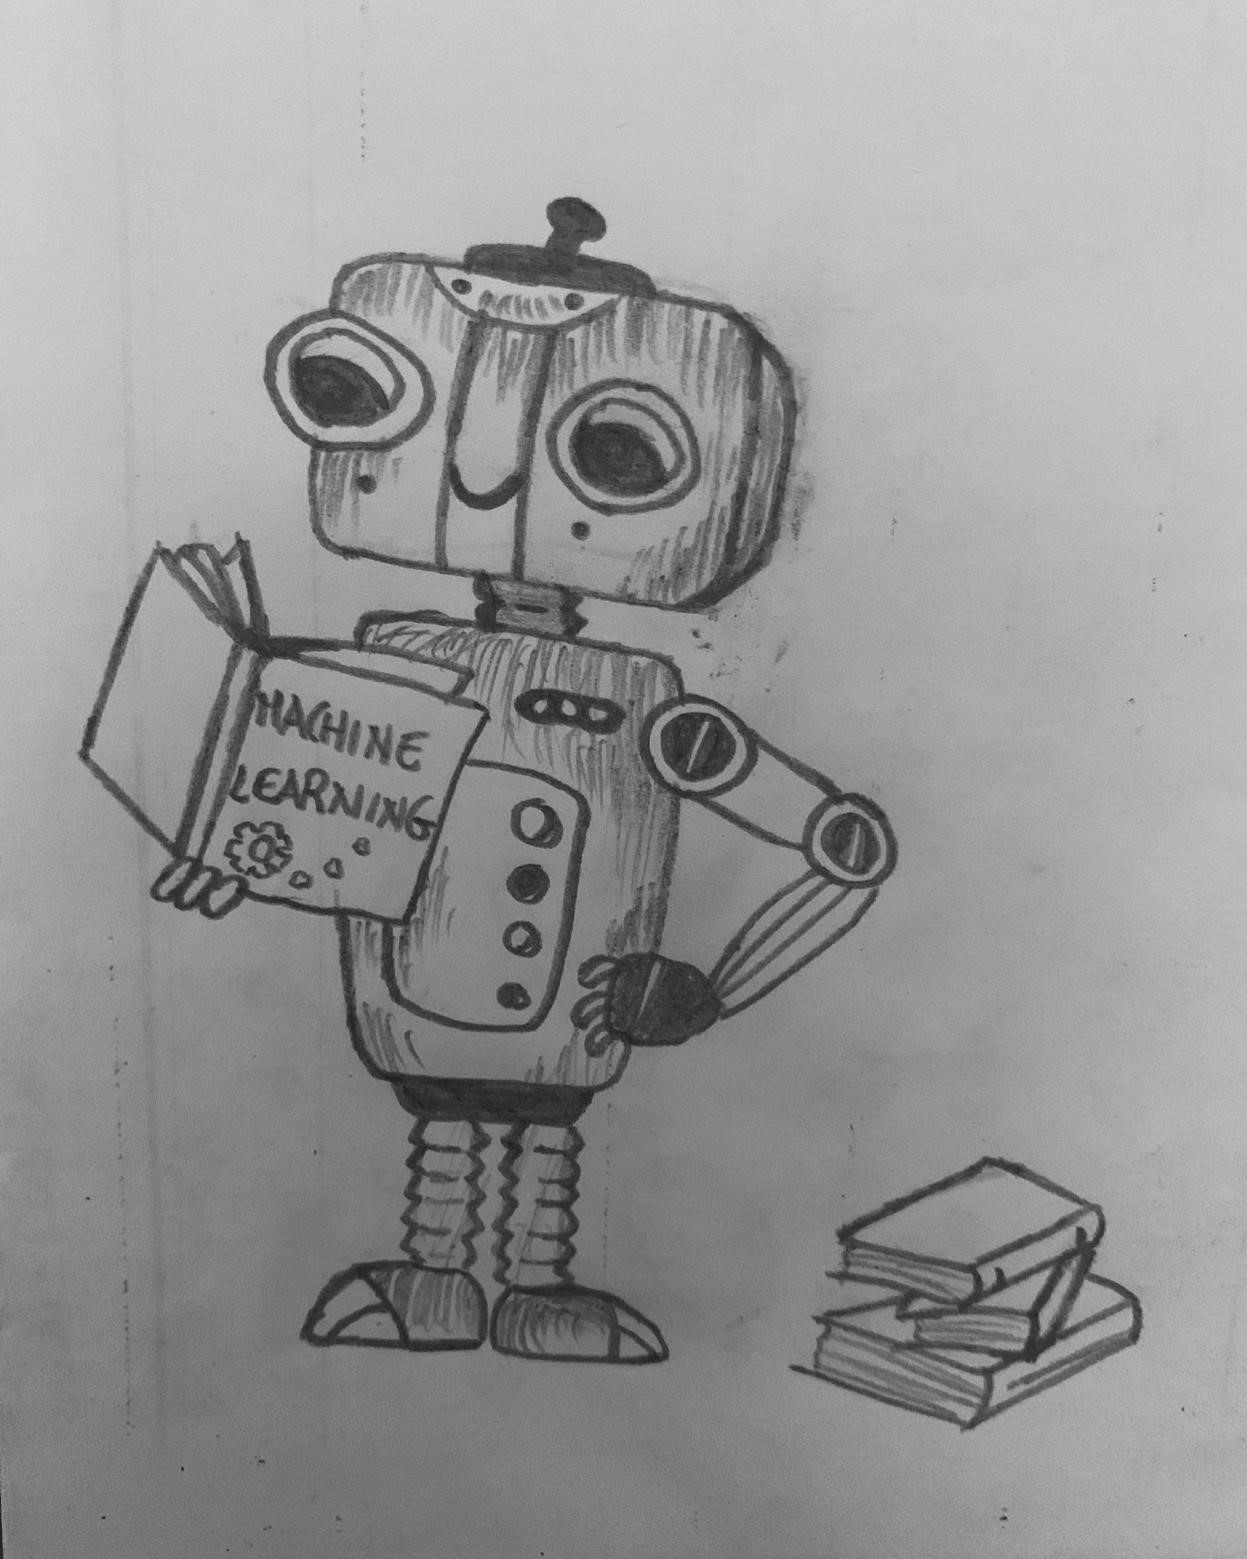 MACHINE
LEARNING